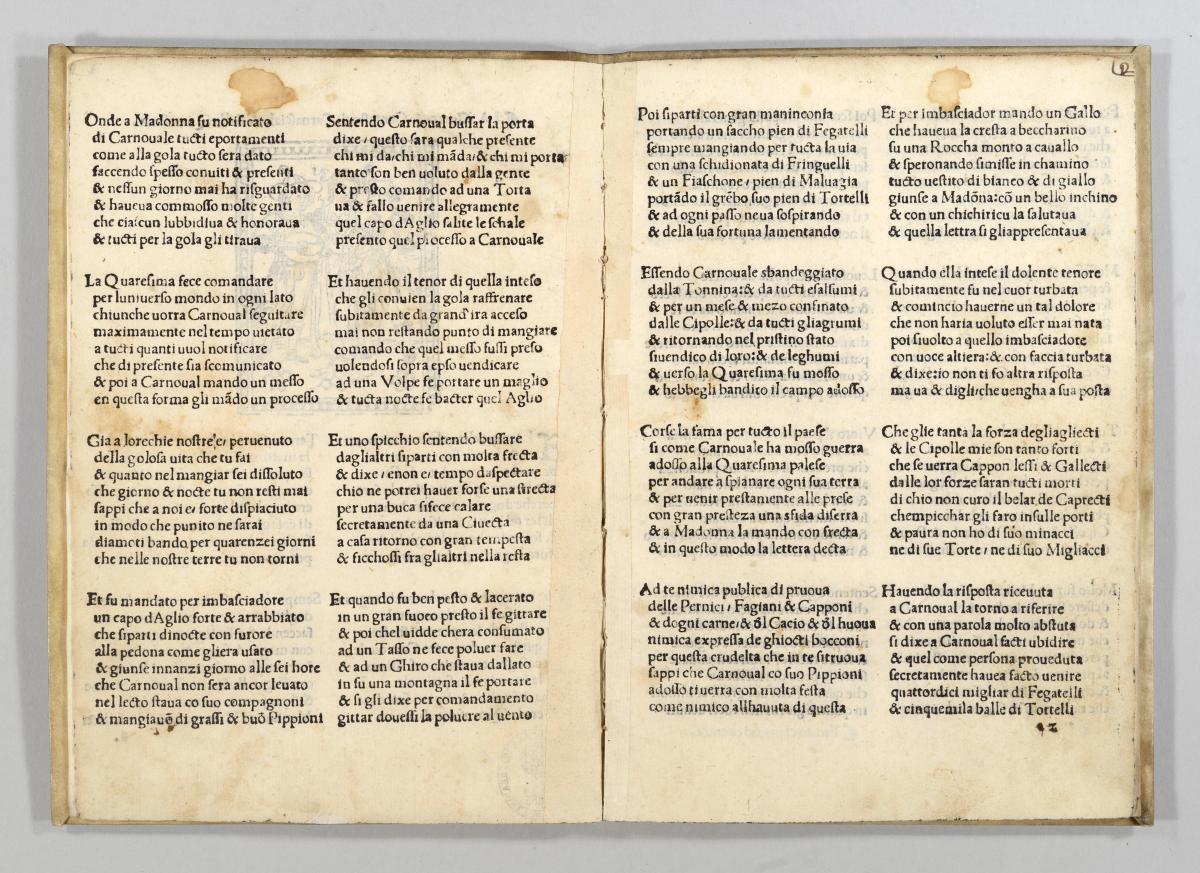 Onde a Madonna fu notificato
di Carnouale tucti eportamenti
come alla gola tucto sera dato
faccendo spesso conuiti & presenti
& nessun giorno mai ha risguardato
& haueua commosso molte genti
che ciascun lubbidiua & honoraua
& tucti per la gola gli tiraua
La Quaresima fece comandare
per luniuerso mondo in ogni lato
chiunche uorra Carnoual seguitare
maximamente nel tempo uietato
a tucti quanti uuol notificare
che di presente sia scomunicato
& poi a Carnoual mando un messo
en questa forma gli mādo un processo
Gia a lorechie nostre e/ peruenuto
della golosa uita che tu fai
& quanto nel mangiar sei dissoluto
che giorno & nocte tu non resti mai
sappi che a noi e/ forte dispiaciuto
in modo che punito ne sarai
diamoti bando per quarenzei giorni
che nelle nostre terre tu non torni
Et fu mandato per imbasciadore
un capo dAglio forte & arrabbiato
che siparti dinocte con furore
alla pedona come gliera usato
& giunse innanzi giorno alle sei hore
che Carnoual non sera ancor leuato
nel lecto staua co suo compagnoni
& mangiauō di grassi & buō Pippioni
Sentendo Carnoual bussar la porta
dixe/ questo sara qualche presente
chi mi da/chi mi māda/& chi mi porta
tanto son ben uoluto dalla gente
& presto comando ad una Torta
ua & fallo uenire allegramente
quel capo dAglio salite le schale
presento quel processo a Carnouale
Et hauendo il tenor di quella inteso
che gli conuien la gola raffrenare
subitamente da grand' ira acceso
mai non restando punto di mangiare
comando che quel messo fussi preso
uolendosi sopra epso uendicare
ad una Volpe fe portare un maglio
& tucta nocte fe bacter quel Aglio
Et uno spicchio sentendo bussare
daglialtri siparti con molta frecta
& dixe/enon e/ tempo daspectare
chio ne potrei hauer forse una strecta
per una buca sifece calare
secretamente da una Ciuecta
a casa ritorno con gran tempesta
& ficchossi fra glialtri nella resta
Et quando fu ben pesto & lacerato
in un gran fuoco presto il fe gittare
& poi chel uidde chera consumato
ad un Tasso ne fece poluer fare
& ad un Ghiro che staua dallato
in su una montagna il fe portare
& si gli dixe per comandamento
gittar douessi la poluere al uēto
Poi siparti con gran maninconia
portando un saccho pien di Fegatelli
sempre mangiando per tucta la uia
con una schidionata di Fringuelli
& un Fiaschone/ pien di Maluagia
portādo il grēbo suo pien di Tortelli
& ad ogni passo neua sospirando
& della sua fortuna lamentando
Essendo Carnouale sbandeggiato
dalla Tonnina:& da tucti esalsumi
& per un mese & mezo confinato
dalle Cipolle:& da tucti gliagrumi
& ritornando nel pristino stato
siuendico di loro:& de leghumi
& uerso la Quaresima fu mosso
& hebbegli bandito il campo adosso
Corse la fama per tucto il paese
si come Carnouale ha mosso guerra
adosso alla Quaresima palese
per andare a spianare ogni sua terra
& per uenir prestamente alle prese
con gran presteza una sfida diserra
& a Madonna la mando con frecta
& in questo modo la lettera decta
Ad te nimica publica di pruoua
delle Pernici/ Fagiani & Capponi
& dogni carne/& ðl Cacio & ðl huoua
nimica expressa de ghiocti bocconi
per questa crudelta che in te sitruoua
sappi che Carnoual co suo Pippioni
adosso tiuerra con molta festa
come nimico allhauuta di questa
Et per imbasciador mando un Gallo
che haueua la cresta a beccharino
su una Roccha monto a cauallo
& speronando simisse in chamino
tucto uestito di bianco & di giallo
giunse a Madōna:cō un bello inchino
& con un chichiricu la salutaua
& quella lettra si gliappresentaua
Quando ella intese il dolente tenore
subitamente fu nel cuor turbata
& comincio hauerne un tal dolore
che non haria uoluto esser mai nata
poi suuolto a quello imbasciadore
con uoce altiera:& con faccia turbata
& dixe:io non ti fo altra risposta
ma ua & digli/che uengha a sua posta
Che glie tanta la forza degliagliecti
& le Cipolle mie son tanto forti
che se uerra Cappon lessi & Gallecti
dalle lor forze saran tucti morti
di chio non curo il belar de Caprecti
chempicchar gli faro insulle porti
& paura non ho di suo minacci
ne di sue Torte/ ne di suo Migliacci
Hauendo la risposta riceuuta
a Carnoual la torno a riferire
& con una parola molto abstuta
si dixe a Carnoual facti ubidire
& quel come persona proueduta
secretamente hauea facto uenire
quattordici migliar di Fegatelli
& cinquemila balle di Tortelli